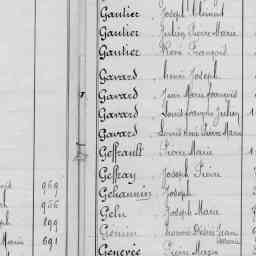 Gautier Joseph Clément
Gautier Julien Pierre Marie
Gautier René François
Gavard Henri Joseph
Gavard Jean Marie François
Gavard Louis François Julien
Gavard Louis René Pierre Marie
Geffrault Pierre Marie
Geffray Joseph Pierre
Gehannin Joseph
969
Gelu Joseph Marie
966
899
Marie 691
Genevée Pierre Marie